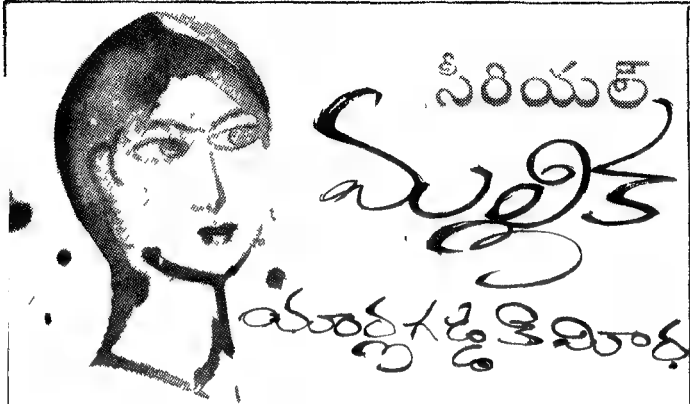 సీరియల్
మల్లిక
యార్లగడ్డ కిమీర